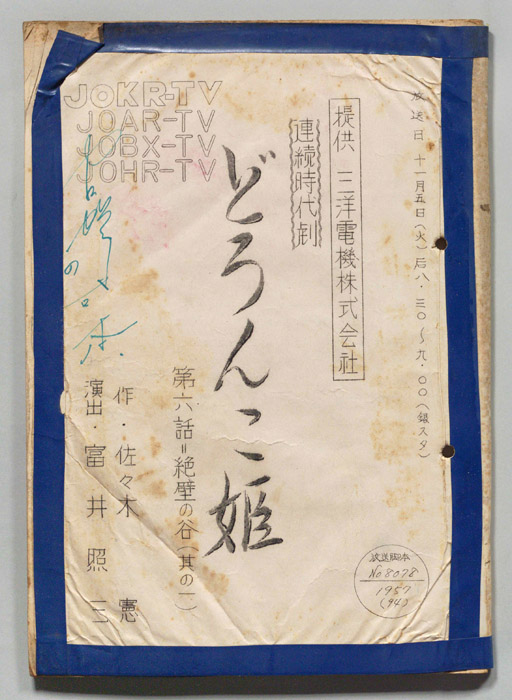 放送日 十一月五日(火)后八・三〇〜九・〇〇(銀スタ)
提供 三洋電機株式会社
連続時代劇
どろんこ姫
第六話=絶壁の谷(其の一)
作・佐々木 憲
演出・富井照三
JOKR-TV
JOAR-TV
JOBX-TV
JOHR-TV
放送脚本
No 8078
1957
(94)